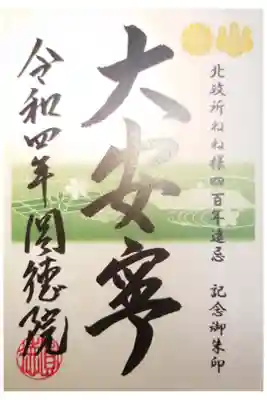 北政所ねね様四百年遠忌　記念御朱印
大安寧
令和四年 圓徳院